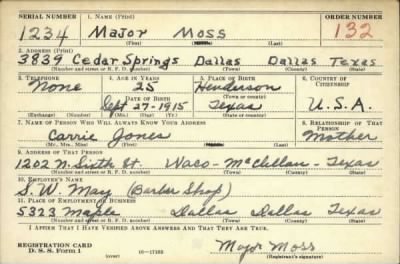 SERIAL NUMBER 1. NAME (Print) ORDER NUMBER
1234 Major Moss 132
(First) (Last)
2. ADDRESS (Print)
3839 Cedar Springs Dallas Dallas Texas
(Number and street or R. F. D. number) (Town) (County) (State)
3. TELEPHONE 4. AGE IN YEARS 5. PLACE OF BIRTH 6. COUNTRY OF CITIZENSHIP
None 25 Henderson
DATE OF BIRTH
Sept 27-1915 Texas U.S.A.
(Exchange) (Number) (Mo.) (Day) (Yr.) (State or country)
7. NAME OF PERSON WHO WILL ALWAYS KNOW YOUR ADDRESS 8. RELATIONSHIP OF THAT PERSON
Carrie Jones Mother
(Mr., Mrs., Miss) (First) (Middle) (Last)
9. ADDRESS OF THAT PERSON
1202 N. Sixth St. Waco - McClellan - Texas
(Number and street or R. F. D. number) (Town) (County) (State)
10. EMPLOYER'S NAME
S. W. May (Barber Shop)
11. PLACE OF EMPLOYMENT OR BUSINESS
5323 Maple Dallas Dallas Texas
(Number and street or R. F. D. number) (Town) (County) (State)
I AFFIRM THAT I HAVE VERIFIED ABOVE ANSWERS AND THAT THEY ARE TRUE.
REGISTRATION CARD
D. S. S. Form 1 (over) 16-17105 Major Moss
(Registrant's signature)